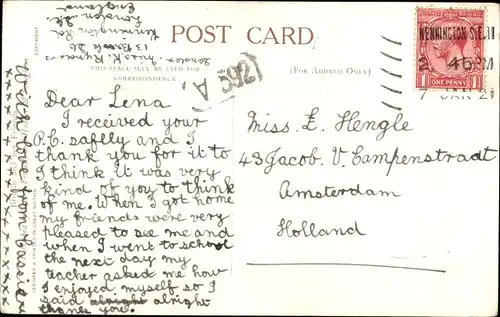 POST CARD
THIS SPACE MAY BE USED FOR
CORRESPONDENCE
(FOR ADDRESS ONLY)
COPYRIGHT
Dear Lena
I received your
P.C. saflly and I
thank you for it to
I think it was very
kind of you to think
of me. When I got home
my friends were very
pleased to see me and
when I went to school
the next day my
teacher asked me how
I enjoyed myself so I
said alright alright
thank you.
With love from
x x x x x x x x x x
Miss K.
Kennington Rd.
London
England
Miss E. Hengle
43 Jacob V. Campenstraat
Amsterdam
Holland
KENNINGTON S.E.11
45 PM
7 JAN 2
ONE PENNY